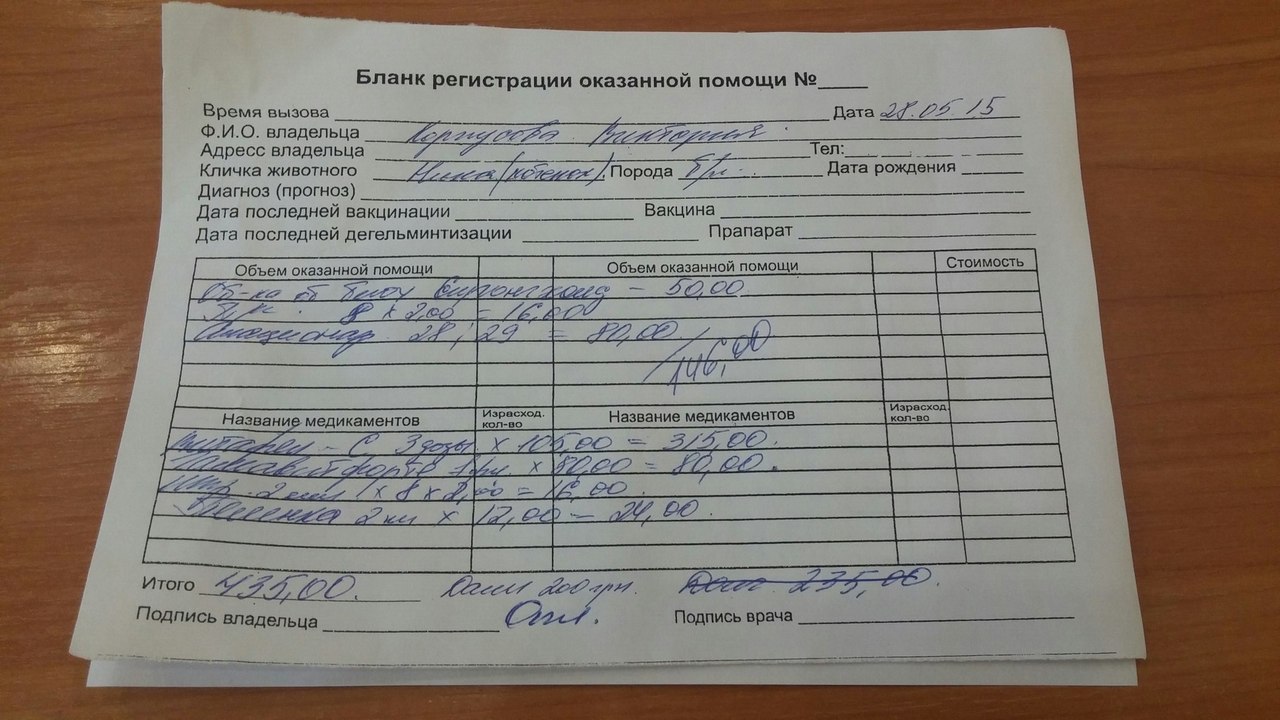 Бланк регистрации оказанной помощи №____
Время вызова Дата 28.05.15
Ф.И.О. владельца Корпусова Виктория
Адресс владельца Тел:
Кличка животного Ника (котенок) Порода б/п Дата рождения
Диагноз (прогноз)
Дата последней вакцинации Вакцина
Дата последней дегельминтизации Прапарат
Объем оказанной помощи Объем оказанной помощи Стоимость
Об-ка от блох Стронгхолд – 50,00
8 x 2,00 = 16,00
Стационар 28, 29 = 80,00
146,00
Название медикаментов Израсход. кол-во Название медикаментов Израсход. кол-во
– С 3 дозы x 105,00 = 315,00.
форте 1 x = 80,00.
2 мл x 8 x 2,00 = 16,00
Пеленка x 12,00 = 24,00.
Итого 435,00. Дали 200 грн. 235,00.
Подпись владельца Опл. Подпись врача